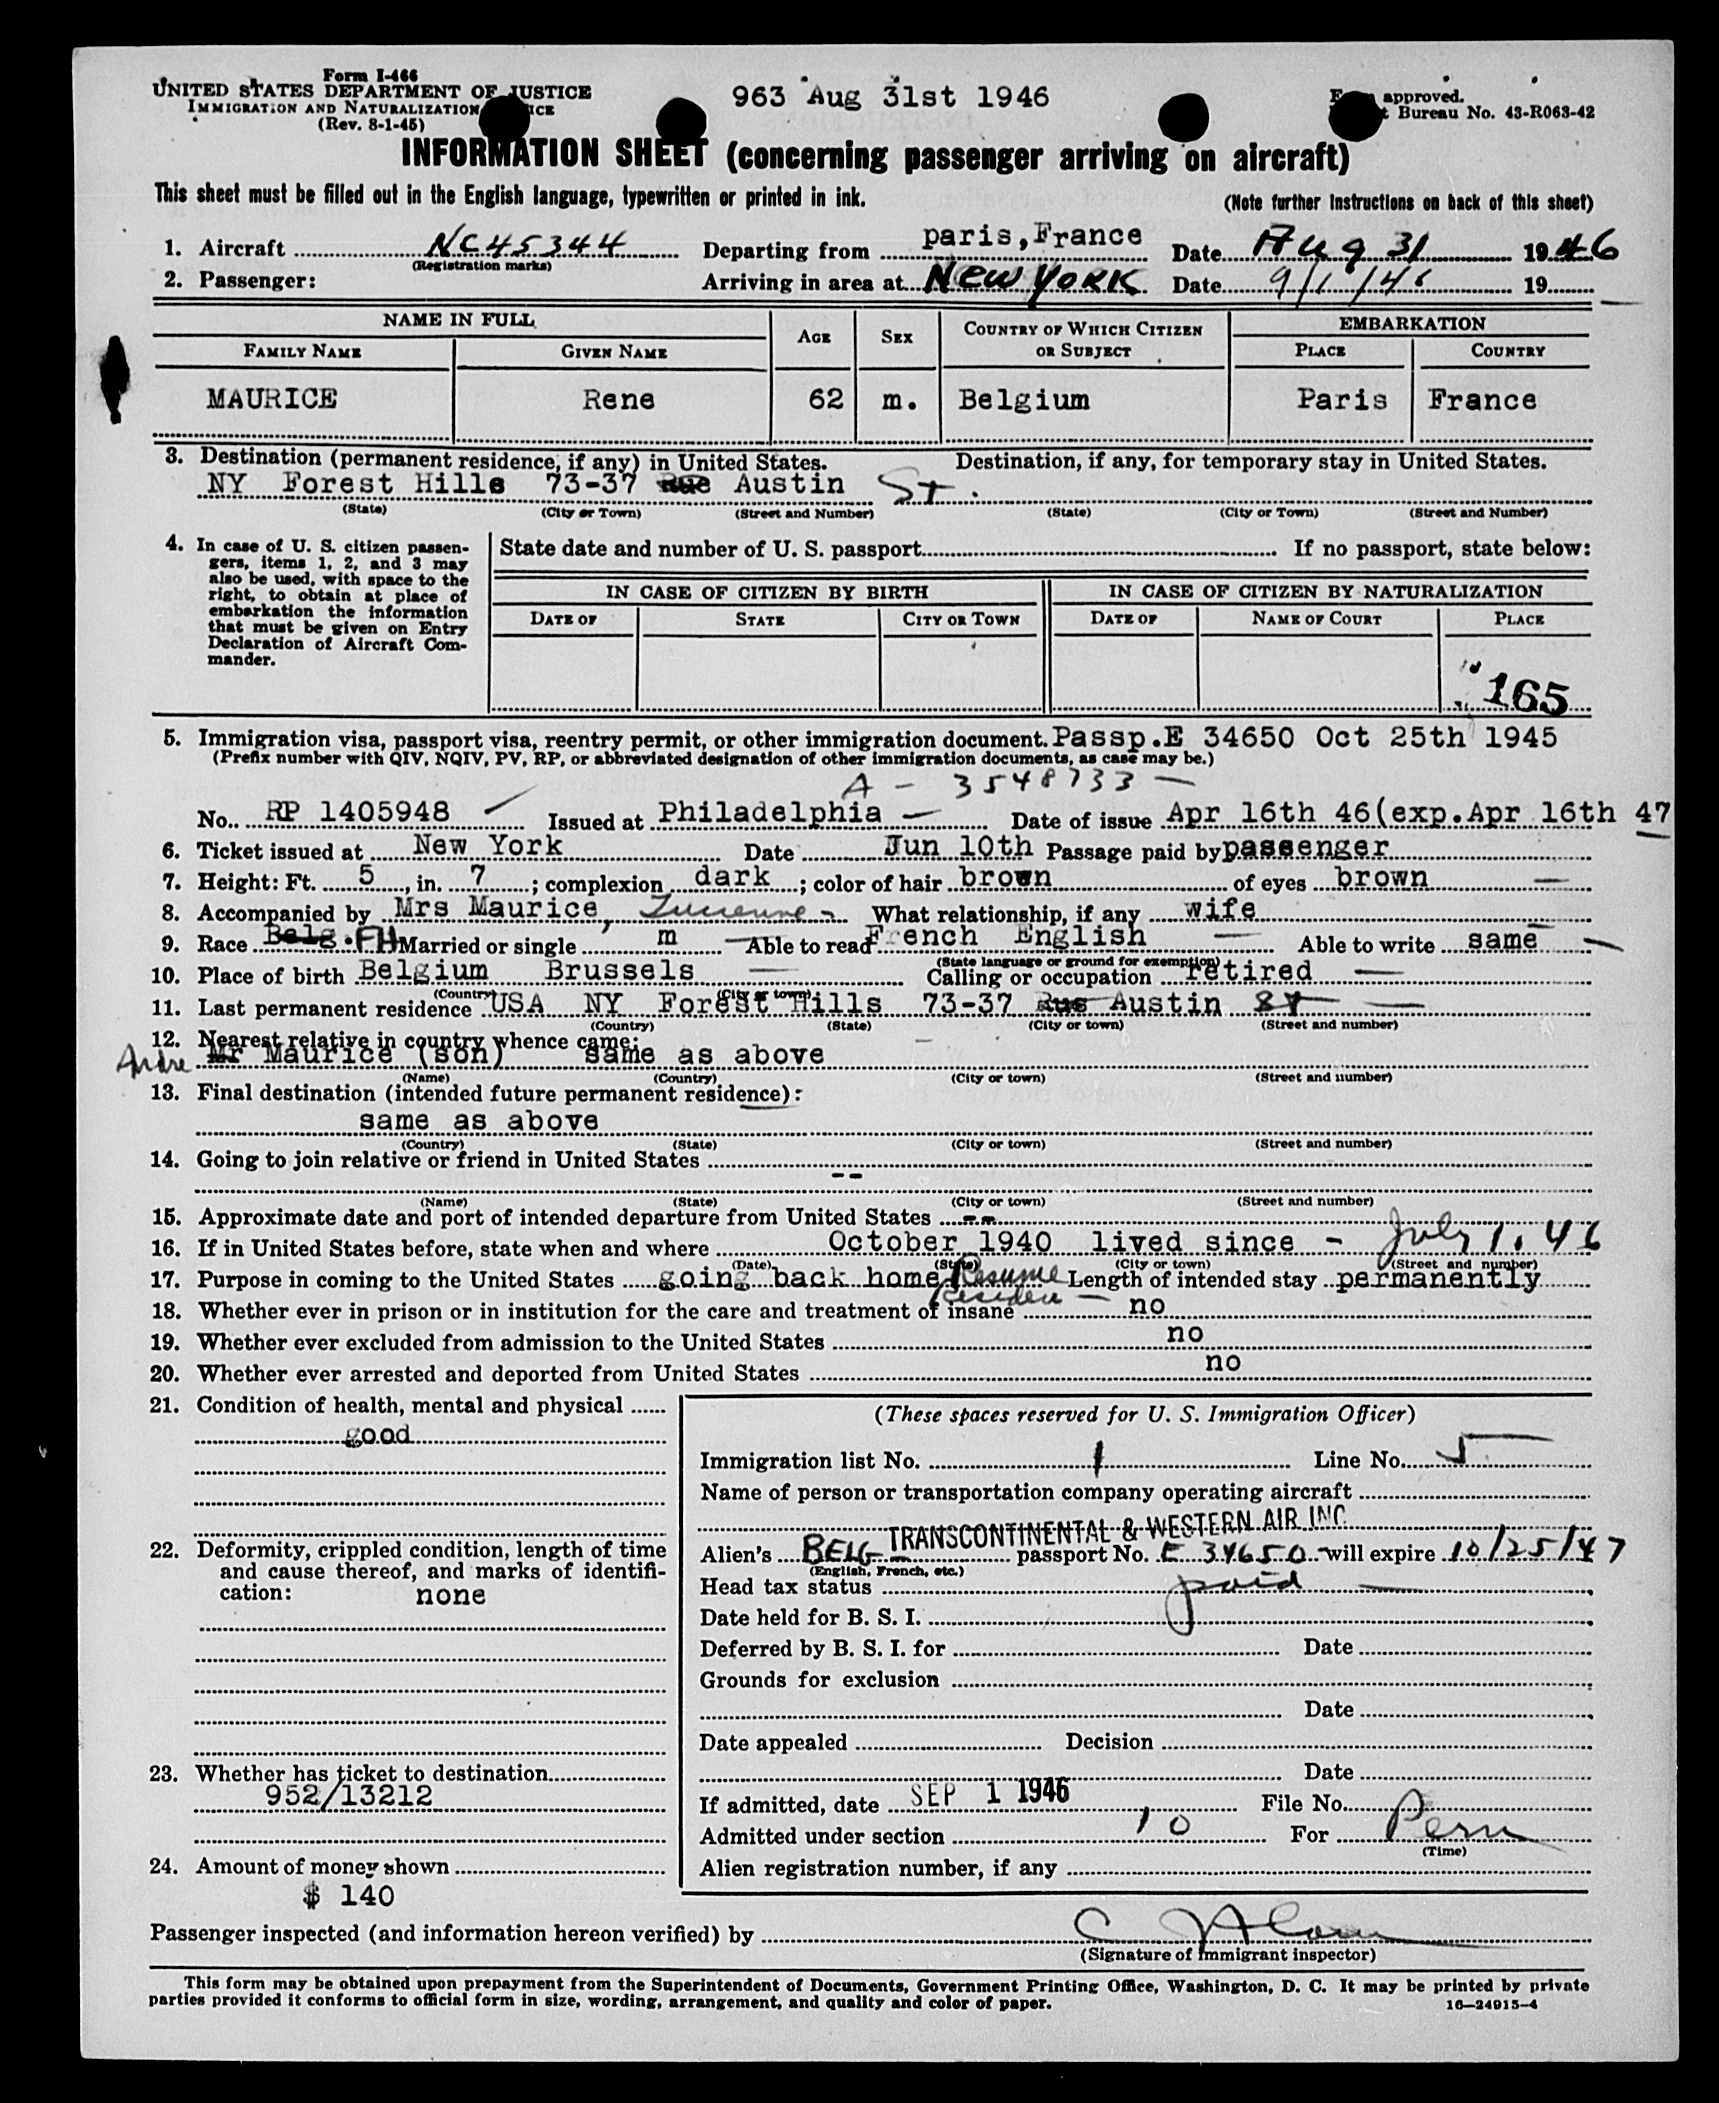 Form I-466
UNITED STATES DEPARTMENT OF JUSTICE
IMMIGRATION AND NATURALIZATION
(Rev. 8-1-45)
963 Aug 31st 1946
approved.
Bureau No. 43-R063-42
INFORMATION SHEET (concerning passenger arriving on aircraft)
This sheet must be filled out in the English language, typewritten or printed in ink.
(Note further instructions on back of this sheet)
1. Aircraft NC45344 Departing from paris,France Date Aug 31 1946
(Registration marks)
2. Passenger: Arriving in area at New York Date 9/1/46 19
NAME IN FULL AGE SEX COUNTRY OF WHICH CITIZEN OR SUBJECT EMBARKATION
FAMILY NAME GIVEN NAME PLACE COUNTRY
MAURICE Rene 62 m. Belgium Paris France
3. Destination (permanent residence, if any) in United States. Destination, if any, for temporary stay in United States.
NY Forest Hills 73-37 Rue Austin St.
(State) (City or Town) (Street and Number) (State) (City or Town) (Street and Number)
4. In case of U. S. citizen passengers, items 1, 2, and 3 may also be used, with space to the right, to obtain at place of embarkation the information that must be given on Entry Declaration of Aircraft Commander.
State date and number of U. S. passport If no passport, state below:
IN CASE OF CITIZEN BY BIRTH IN CASE OF CITIZEN BY NATURALIZATION
DATE OF STATE CITY OR TOWN DATE OF NAME OF COURT PLACE
165
5. Immigration visa, passport visa, reentry permit, or other immigration document. Passp.E 34650 Oct 25th 1945
(Prefix number with QIV, NQIV, PV, RP, or abbreviated designation of other immigration documents, as case may be.)
A - 3548733 -
No. RP 1405948 Issued at Philadelphia Date of issue Apr 16th 46(exp.Apr 16th 47
6. Ticket issued at New York Date Jun 10th Passage paid by passenger
7. Height: Ft. 5, in. 7; complexion dark; color of hair brown of eyes brown
8. Accompanied by Mrs Maurice, Lucienne What relationship, if any wife
9. Race Belg. FH Married or single m Able to read French English Able to write same
(State language or ground for exemption)
10. Place of birth Belgium Brussels Calling or occupation retired
(Country) (City or town)
11. Last permanent residence USA NY Forest Hills 73-37 Rue Austin St
(Country) (State) (City or town) (Street and number)
12. Nearest relative in country whence came:
Andre Mr Maurice (son) same as above
(Name) (Country) (City or town) (Street and number)
13. Final destination (intended future permanent residence):
same as above
(Country) (State) (City or town) (Street and number)
14. Going to join relative or friend in United States
--
(Name) (State) (City or town) (Street and number)
15. Approximate date and port of intended departure from United States --
16. If in United States before, state when and where October 1940 lived since - July 1. 46
(Date) (State) (City or town) (Street and number)
17. Purpose in coming to the United States going back home Resume Length of intended stay permanently
18. Whether ever in prison or in institution for the care and treatment of insane no
19. Whether ever excluded from admission to the United States no
20. Whether ever arrested and deported from United States no
21. Condition of health, mental and physical
good
22. Deformity, crippled condition, length of time and cause thereof, and marks of identification: none
23. Whether has ticket to destination
952/13212
24. Amount of money shown
$ 140
(These spaces reserved for U. S. Immigration Officer)
Immigration list No. 1 Line No. 5
Name of person or transportation company operating aircraft
TRANSCONTINENTAL & WESTERN AIR INC
Alien's BELG passport No. E 34650 will expire 10/25/47
(English, French, etc.)
Head tax status paid
Date held for B. S. I.
Deferred by B. S. I. for Date
Grounds for exclusion
Date
Date appealed Decision
Date
If admitted, date SEP 1 1946 File No.
Admitted under section 10 For Perm
(Time)
Alien registration number, if any
Passenger inspected (and information hereon verified) by
(Signature of immigrant inspector)
This form may be obtained upon prepayment from the Superintendent of Documents, Government Printing Office, Washington, D. C. It may be printed by private
parties provided it conforms to official form in size, wording, arrangement, and quality and color of paper.
16—24915-4